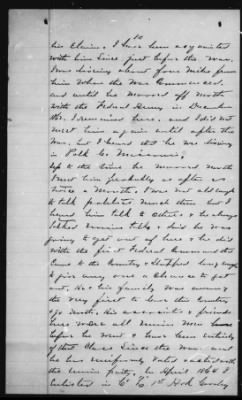 10
his Claim. I have been acquainted
with him since just before the war.
I was living about four miles from
him when the war Commenced.
and until he moved off North
with the Federal Army in December
I remained here, and I did not
meet him again until after the
war, but I heard that he was living
in Polk Co. Missouri.
Up to the time he moved North
I met him probably as often as
twice a month. I was not old enough
to talk politics much then but I
heard him talk to others, & he always
talked Union talk & said he was
going to get out of here & he did
with the first Federal Command that
Came to the Country & stopped long enough
to give any one a Chance to get
out. He & his family was among
the very first to leave this Country
& go North. His associates & friends
here were all Union men
before he went & have been entirely
of that Class since the war and
he has uniformly voted with
the Union party. In April 1864 I
Enlisted in Co. "C" 1st Ark Cavalry